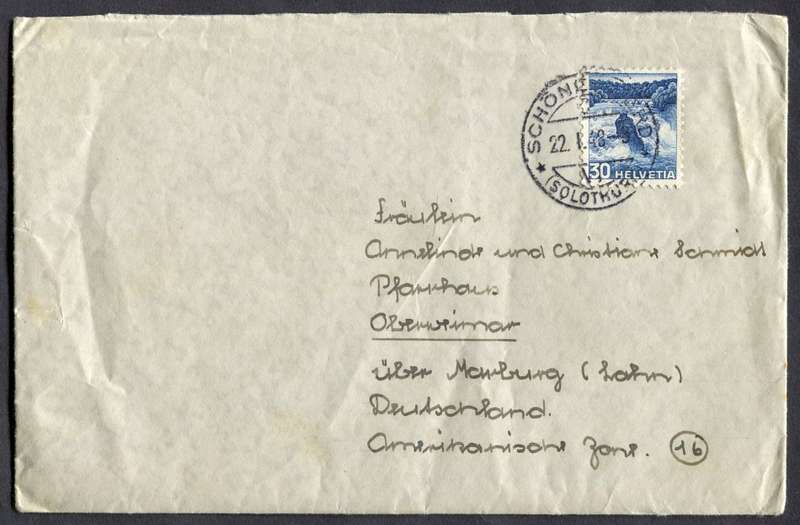 SCHÖNENWERD
22. I. 48
(SOLOTHURN)
30 HELVETIA
Fräulein
Annelinde und Christiane Schmidt
Pfarrhaus
Oberweimar
über Marburg (Lahn)
Deutschland.
Amerikanische Zone. 16